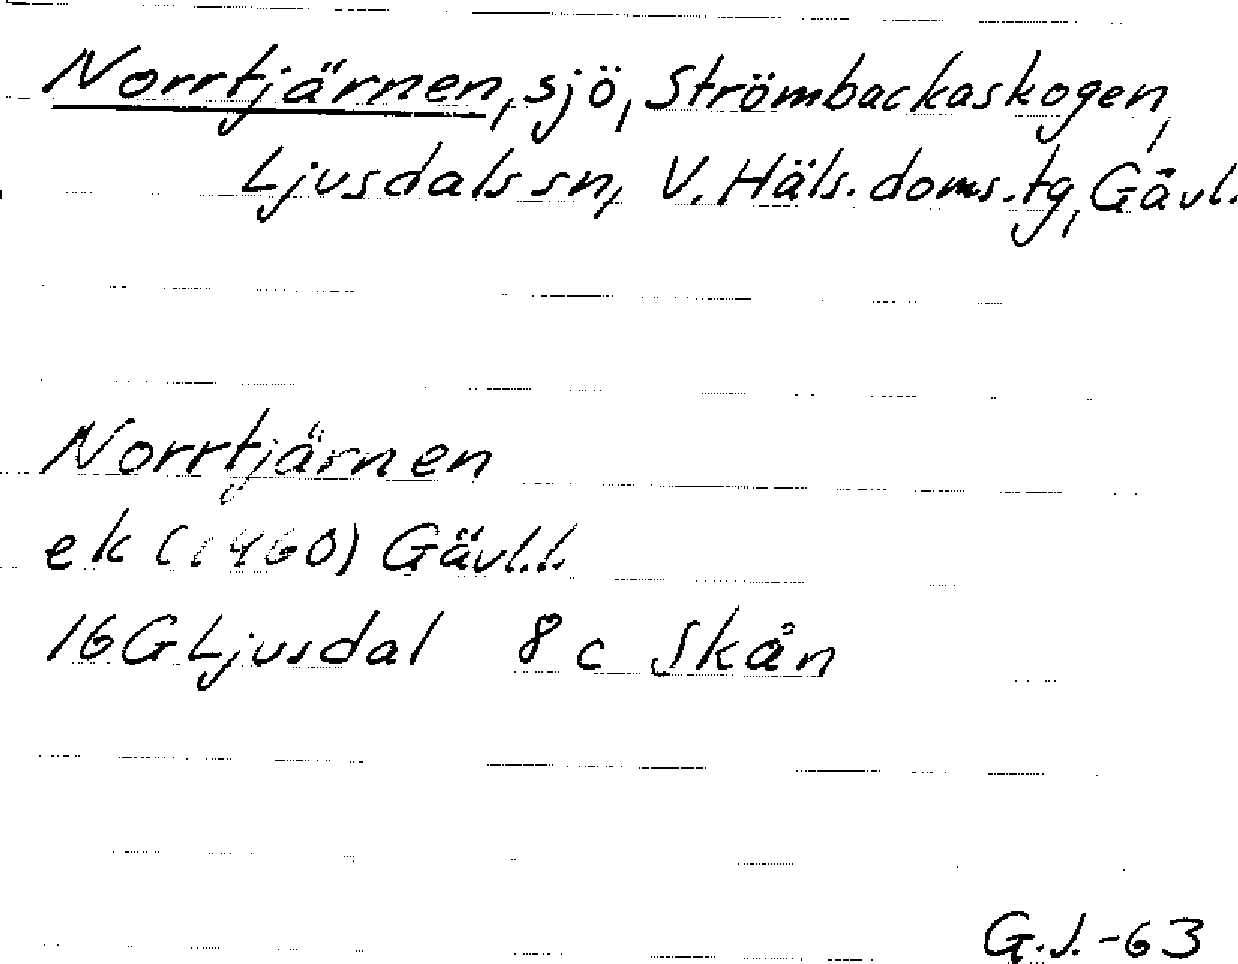 Norrtjärnen, sjö, Strömbackaskogen,
Ljusdals sn, V. Häls. doms.tg, Gävl.
Norrtjärnen
ek (1960) Gävl.l.
16G Ljusdal 8 c Skån
G.J.-63